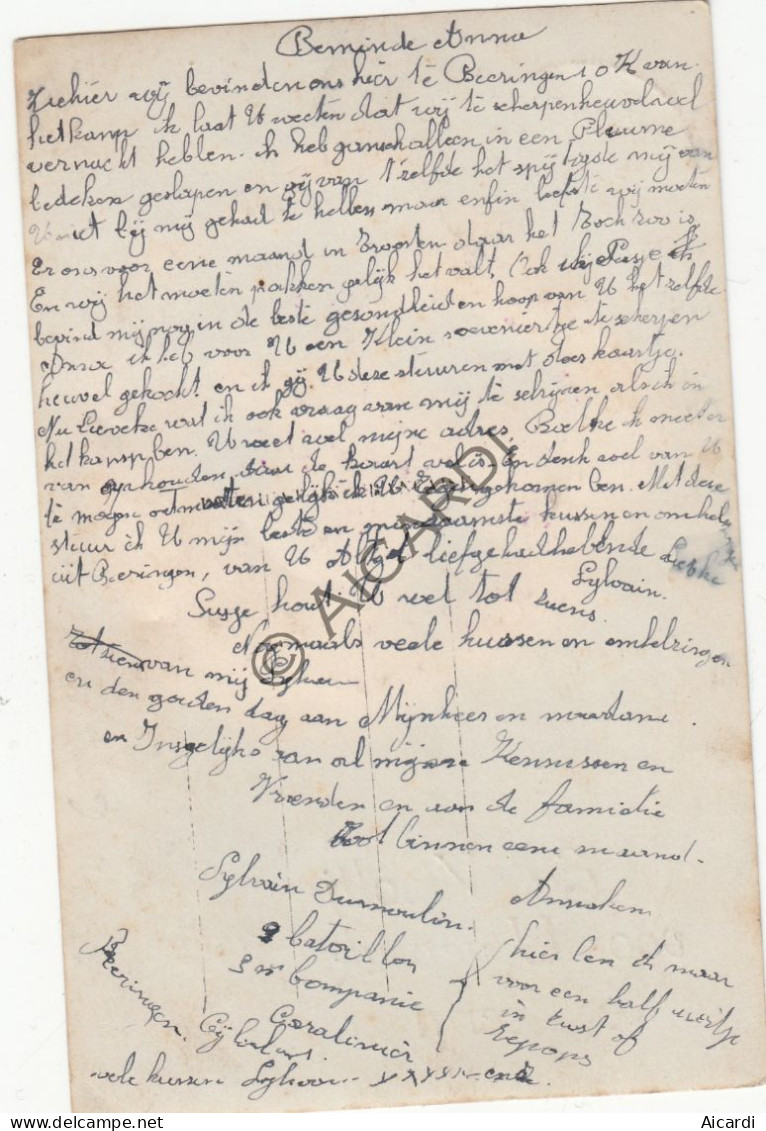 Beminde Anna
Ziehier wij bevinden ons hier te Beeringen 10 K van
het kamp ik laat U weten dat wij te scherpenheuvel
vernacht hebben. ik heb gansch alleen in een Pluume
bedeken geslapen en gij van t'zelfde het spijtigste mij van
U niet bij mij gehad te hebben maar enfin liefste wij moeten
Er ons voor eene maand in Troosten daar het Toch zoo is
En wij het moeten pakken gelijk het valt. Ook
bevind mij nog in de beste gesondheid en hoop van U het zelfde
Anna ik heb voor U een Klein souveniertje te scherpen
heuvel gekocht en ik U deze stuuren met dees kaartje.
Nu Lieveke wat ik ook vraag aan mij te schrijven als ik in
het kamp ben. U weet wel mijne adres. ik moet er
van ophouden daar de kaart vol is. En denk wel van U
te mogen gelijk ik U ben. Met deze
stuur ik U mijn beste en kussen en omhel
uit Beeringen, van U Altijd liefgehadhebbende
Sylvain.
Susje houd U wel tot ziens.
Nogmaals veele kussen en omhelzingen
van mij Sylvain
en den gouden dag aan Mijnheer en madame.
en Insgelijks van al mijne Kennissen en
Vrienden en aan de familie
Tot binnen eene maand.
Sylvain Dumoulin. Annaken
2 batoillon
3 m Compagnie
Beeringen.
{ hier ben ik maar
voor een half uurtje
in rust of
Repops
vele kussen Sylvain
© AICARDI
Aicardi